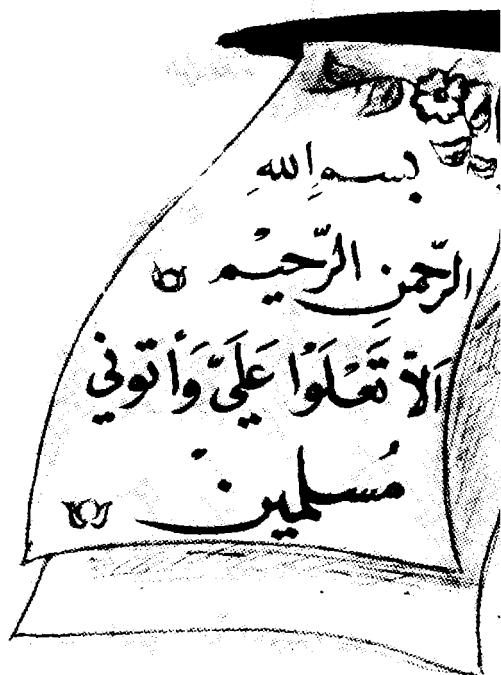 بسم اللهِ
الرّحمن الرّحيم
ألاّ تَعْلَوْا عَلَيّ وَأتوني
مُسلمين